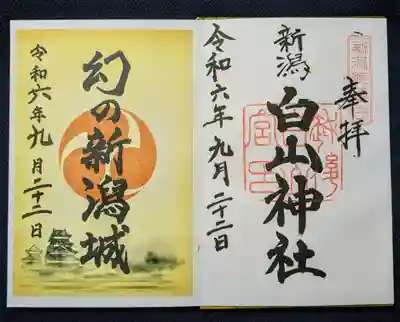 幻の新潟城
令和六年九月二十二日
奉拝
新潟
白山神社
令和六年九月二十二日